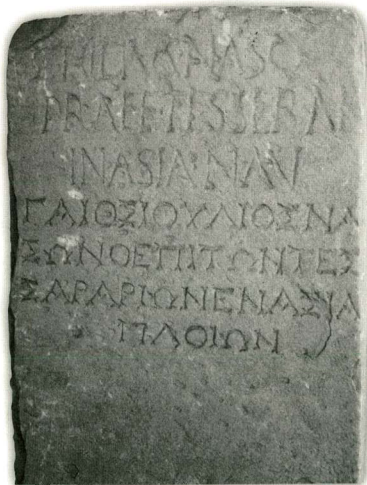 PRAEF·TESSERAR
IN ASIA NAV
ΓΑΙΟΣ ΙΟΥΛΙΟΣ ΝΑ
ΣΩΝ Ο ΕΠΙ ΤΩΝ ΤΕΣ
ΣΑΡΑΡΙΩΝ ΕΝ ΑΣΙΑ
ΠΛΟΙΩΝ